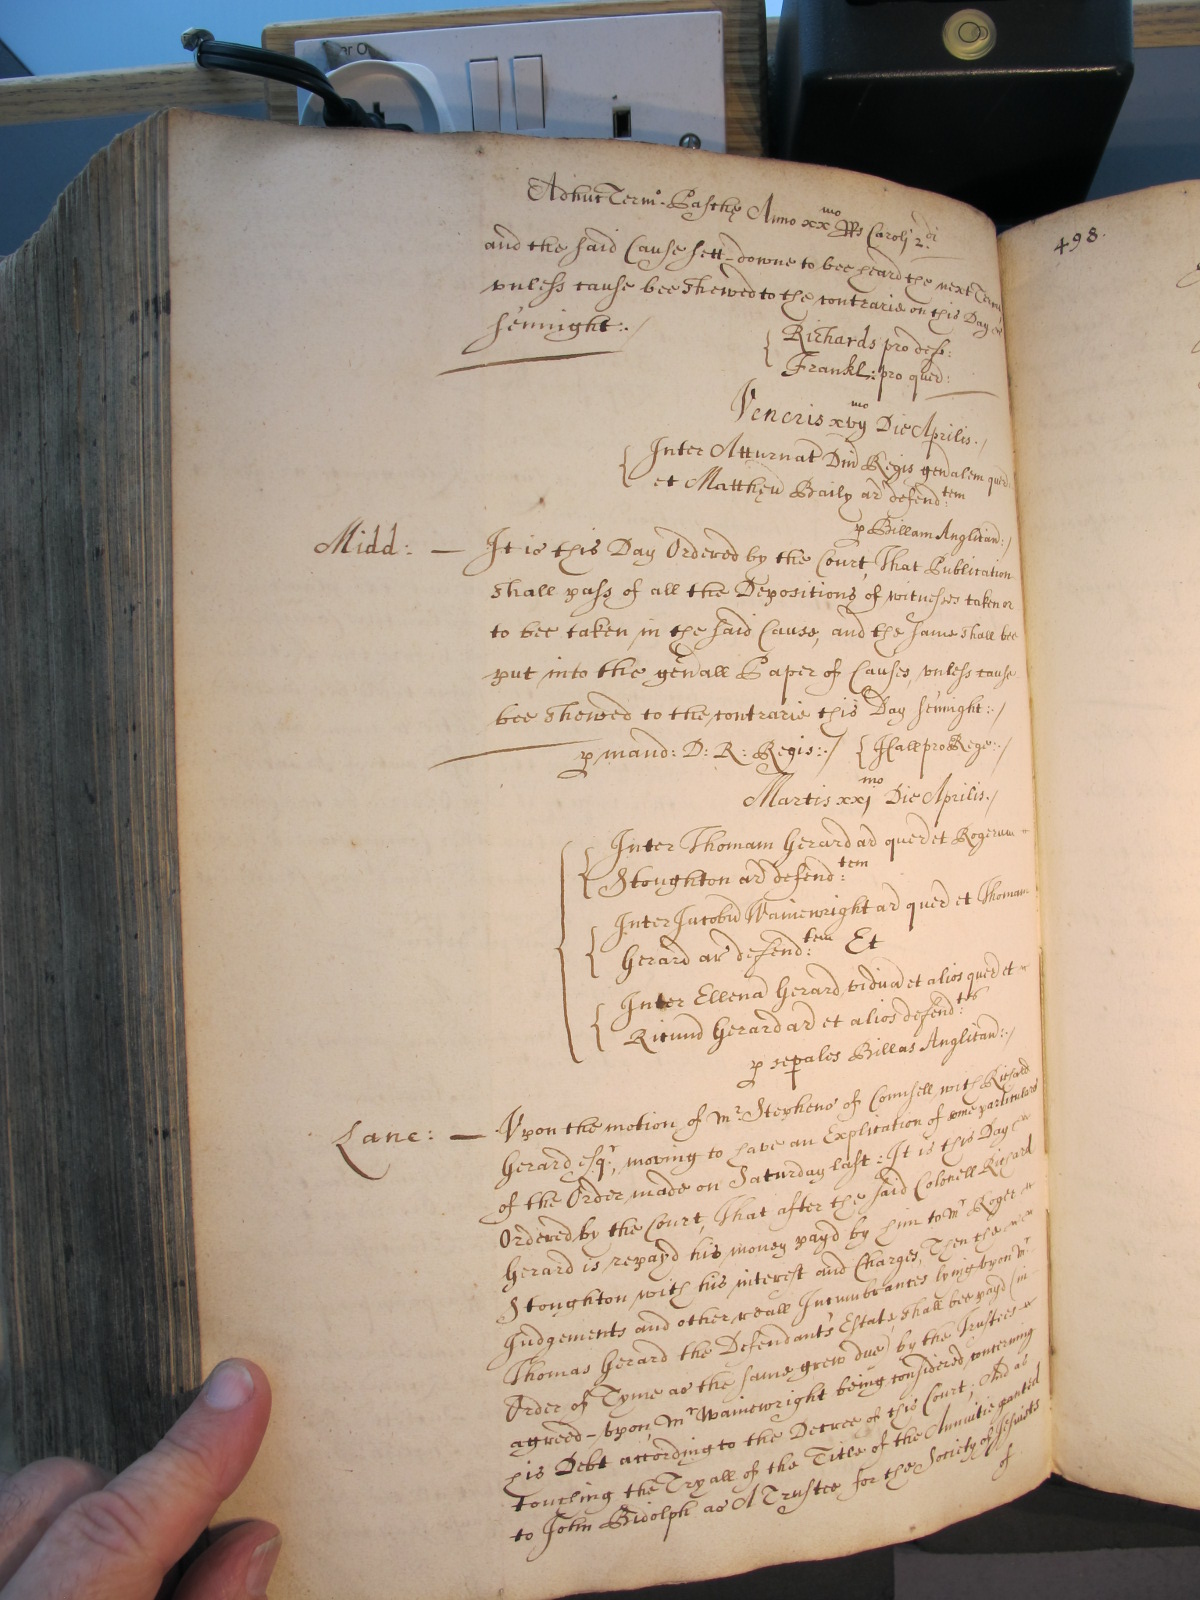 Adhuc Term: Paschę Anno xx.mo Rs Caroli 2.di
and the said Cause sett-downe to bee heard the next Terme
vnless cause bee shewed to the contrarie on this Day
sennight:./
Richards pro def:
Frankl: pro quer:
Veneris xvij mo Die Aprilis./
Inter Atturnat Dnd Regis genalem quer
et Mattheu Baily ar defend:tem
p Billam Anglican:/
Midd: — It is this Day Ordered by the Court, That Publication
shall pass of all the Depositions of witnesses taken or
to bee taken in the said Cause, and the same shall bee
put into the genall Paper of Causes, vnless cause
bee shewed to the contrarie this Day sennight:./
p mand: D: R: Regis:./ Hall pro Rege:./
Martis xxj mo Die Aprilis./
Inter Thomam Gerard ar quer et Rogerum
Stoughton ar defend:tem
Inter Jacobu Wainewright ar quer et Thomam
Gerard ar defend:tem Et
Inter Ellena Gerard vidua et alios quer et
Ricum Gerard ar et alios defend:tes
p sepales Billas Anglican:./
Lanc: — Vpon the motion of Mr. Stephens of Counsell, with Richard
Gerard esqr, moving to have an Explication of some particulars
of the Order made on Saturday last: It is this Day
Ordered by the Court, That after the said Colonell Richard
Gerard is repay'd his money payd by him to Mr Roger
Stoughton with his interest and Charges, Then the
Judgements and other reall Incumbrances lying vpon Mr.
Thomas Gerard the Defendants Estate, shall bee payd (in
Order of Tyme as the same grew due) by the Trustees
agreed-vpon, Mr Wainewright being considered, concerning
his Debt according to the Decree of this Court; And as
touching the Tryall of the Title of the Annuitie granted
to John Bidolph as A Trustee for the Society of Jesuists
of
498.